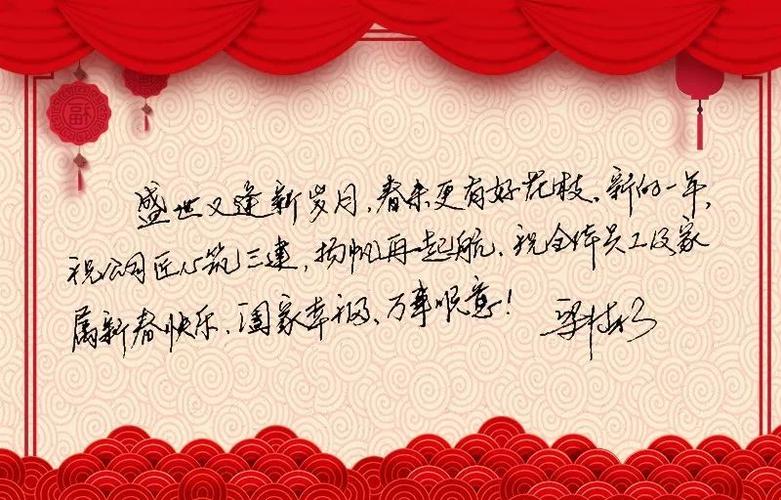 福
盛世又逢新岁月,春来更有好花枝。新的一年,
祝公司匠心筑三建,扬帆再起航。祝全体员工及家
属新春快乐、阖家幸福、万事顺意!